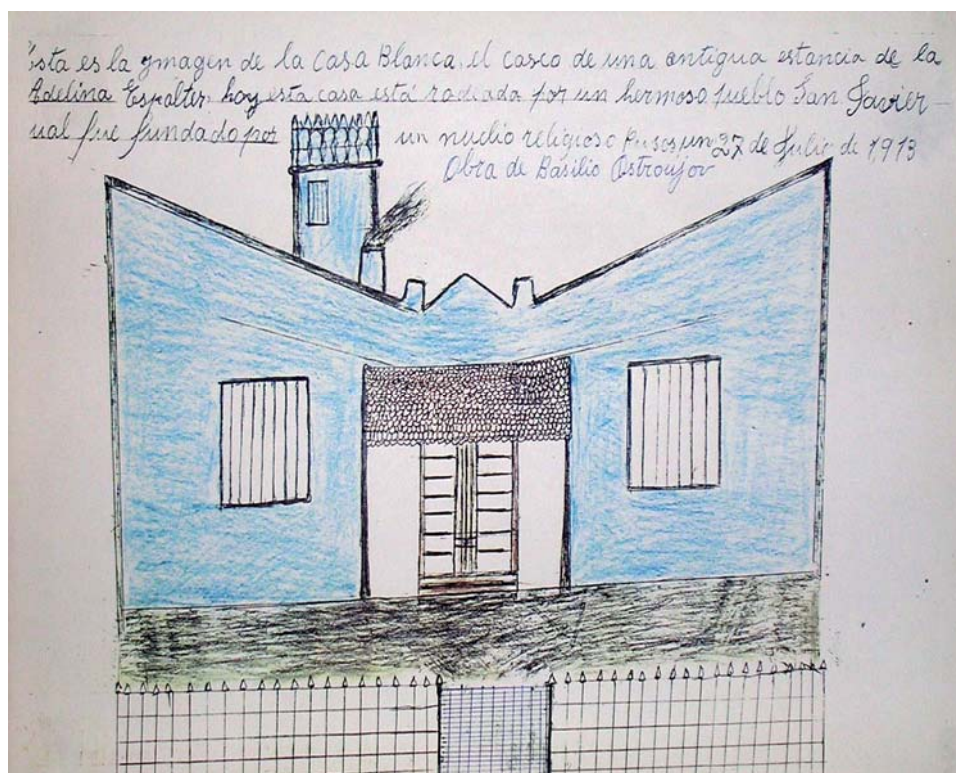 ésta es la ymagen de la Casa Blanca, el casco de una antigua estancia de la
Adelina Espalter, hoy esta casa está radiada por un hermoso pueblo San Javier
ual fue fundado por un nuclio religioso Rusos un 27 de Julio de 1,913
Obra de Basilio Ostroujov